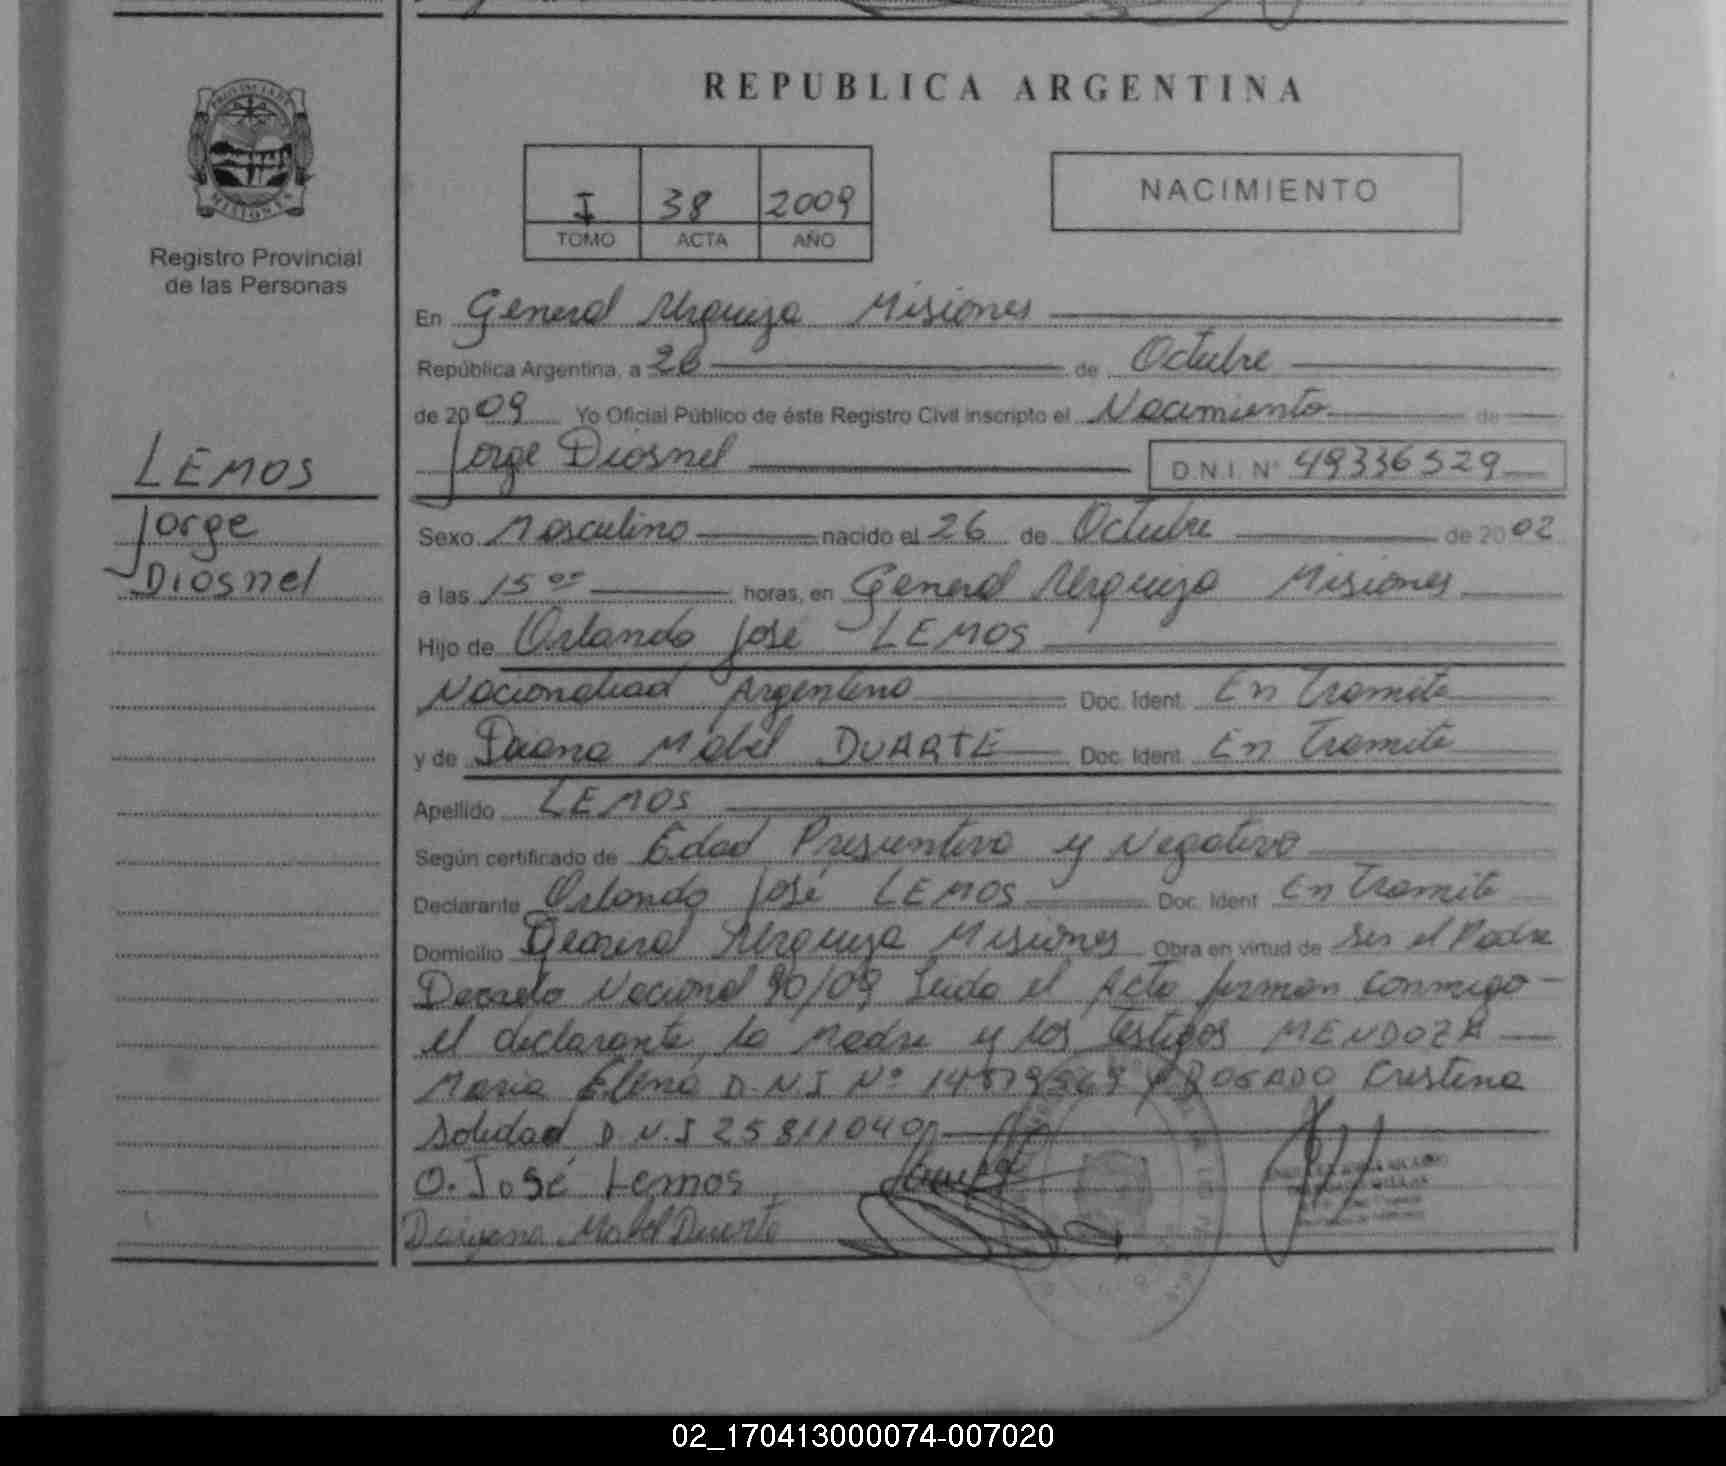 PROVINCIA DE
MISIONES
Registro Provincial
de las Personas
LEMOS
Jorge
Diosnel
REPUBLICA ARGENTINA
I 38 2009
TOMO ACTA AÑO
NACIMIENTO
En General Urquiza Misiones
República Argentina, a 26 de Octubre
de 2009 Yo Oficial Público de éste Registro Civil inscripto el Nacimiento de
Jorge Diosnel D.N.I. Nº 49336529
Sexo Masculino nacido el 26 de Octubre de 2002
a las 15ºº horas, en General Urquiza Misiones
Hijo de Orlando José LEMOS
Nacionalidad Argentino Doc. Ident. En Tramite
y de Daiana Mabel DUARTE Doc. Ident. En Tramite
Apellido LEMOS
Según certificado de Edad Presuntiva y Negativo
Declarante Orlando José LEMOS Doc. Ident. En Tramite
Domicilio General Urquiza Misiones Obra en virtud de Ser el Padre
Decreto Nacional 90/09 Leida el Acta firman conmigo
el declarante, la Madre y los testigos MENDOZA
Maria Elena D.N.I Nº ROSADO Cristina
Soledad D.N.I
O. José Lemos
Daiyana Mabel Duarte
02_170413000074-007020